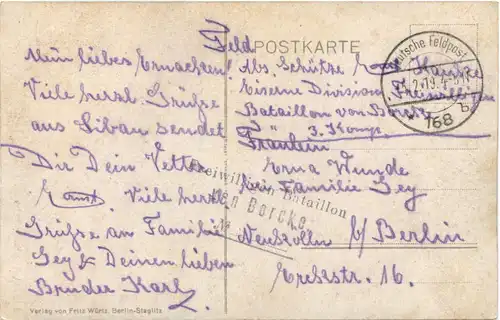 Feld
POSTKARTE
Mein liebes Ernachen!
Viele herzl. Grüße
aus Libau sendet
Dir Dein Vetter
Ernst Viele herzl.
Grüße an Familie
Gey & Deinen lieben
Bruder Karl
Abs. Schütze Ernst
Eiserne Division
Bataillon von Borcke
3. Komp.
Deutsche Feldpost
168
b
Fräulein
Erna Wunde
bei Familie Gey
Neukölln b/ Berlin
16.
Freiwilligen Bataillon
von Borcke
Verlag von Fritz Würtz, Berlin-Steglitz.